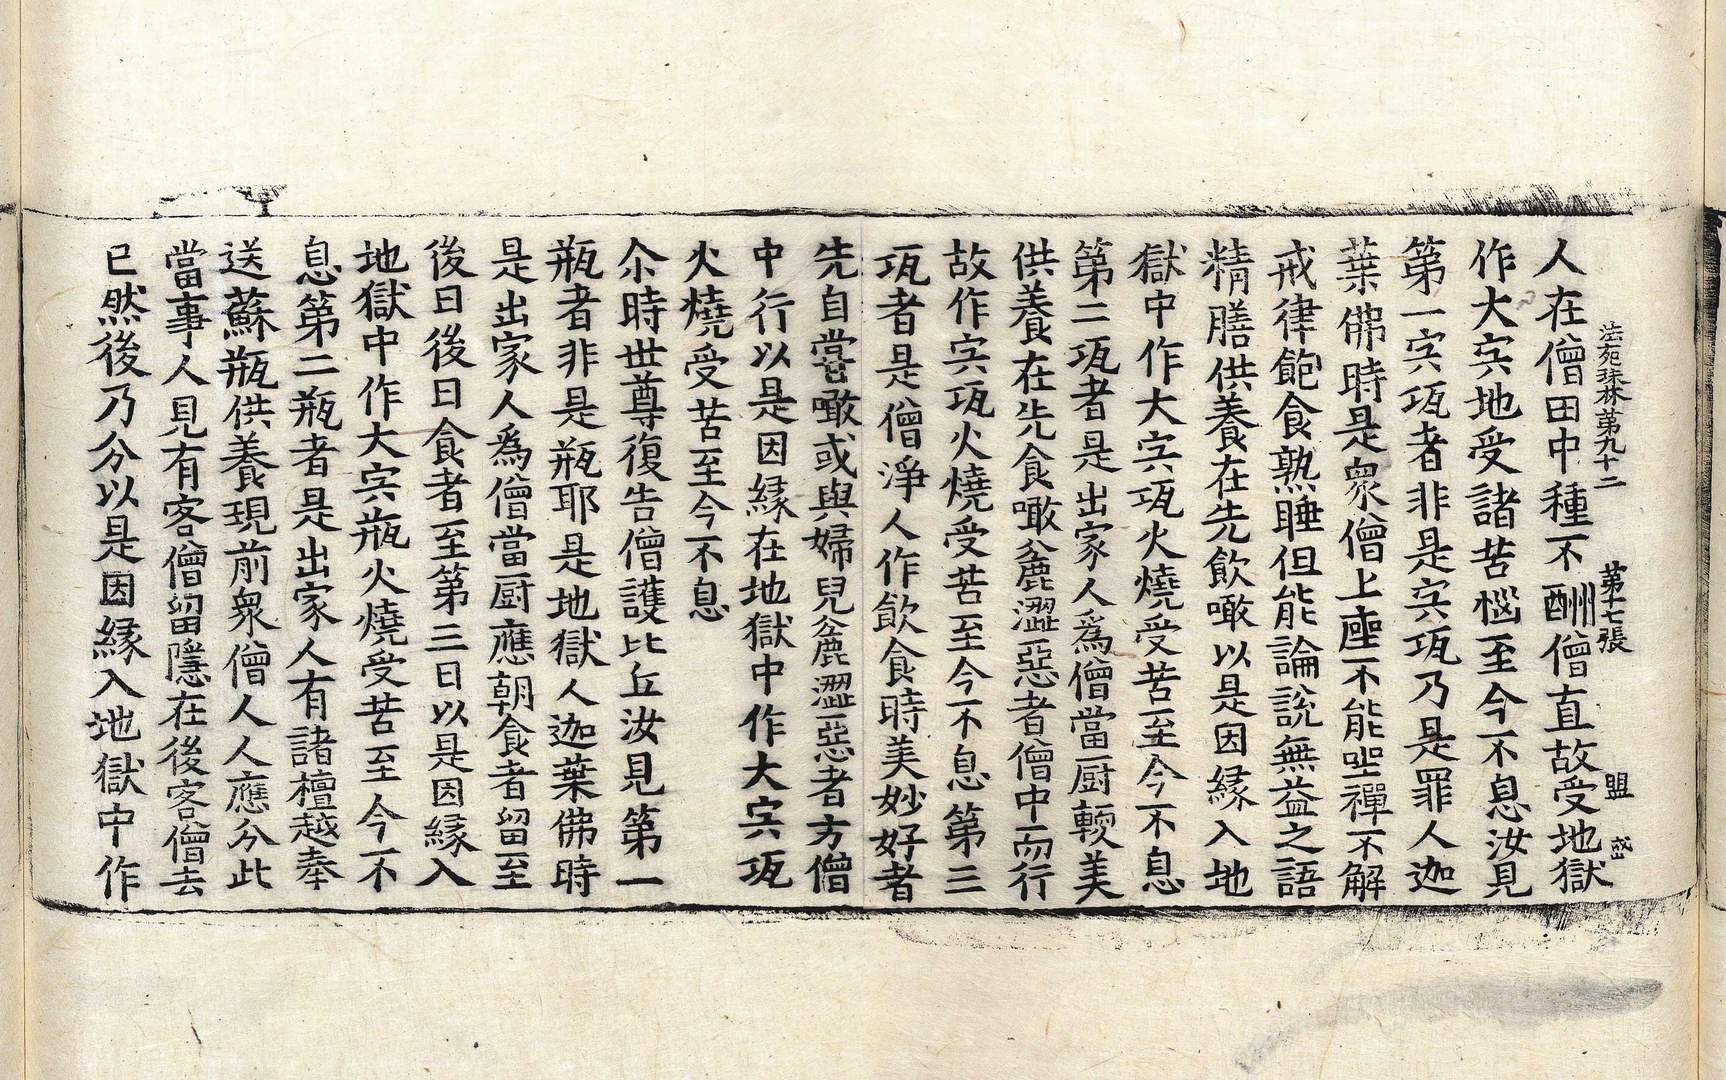 法苑珠林第九十二　第十七張　盟
人在僧田中種不酬僧直故受地獄
作大㝑地受諸苦惱至今不息汝見
第一㝑瓨者非是㝑瓨乃是罪人迦
葉佛時是衆僧上座不能坐禪不解
戒律飽食熟睡但能論說無益之語
精膳供養在先飲噉以是因縁入地
獄中作大㝑瓨火燒受苦至今不息
第二瓨者是出家人爲僧當厨軟美
供養在先食噉麁澀惡者僧中而行
故作㝑瓨火燒受苦至今不息第三
瓨者是僧淨人作飲食時美妙好者
先自甞噉或與婦兒麁澀惡者方僧
中行以是因縁在地獄中作大㝑瓨
火燒受苦至今不息
尒時世尊復告僧護比丘汝見第一
瓶者非是瓶耶是地獄人迦葉佛時
是出家人爲僧當厨應朝食者留至
後日後日食者至第三日以是因縁入
地獄中作大㝑瓶火燒受苦至今不
息第二瓶者是出家人有諸檀越奉
送蘇瓶供養現前衆僧人人應分此
當事人見有客僧留隱在後客僧去
已然後乃分以是因縁入地獄中作